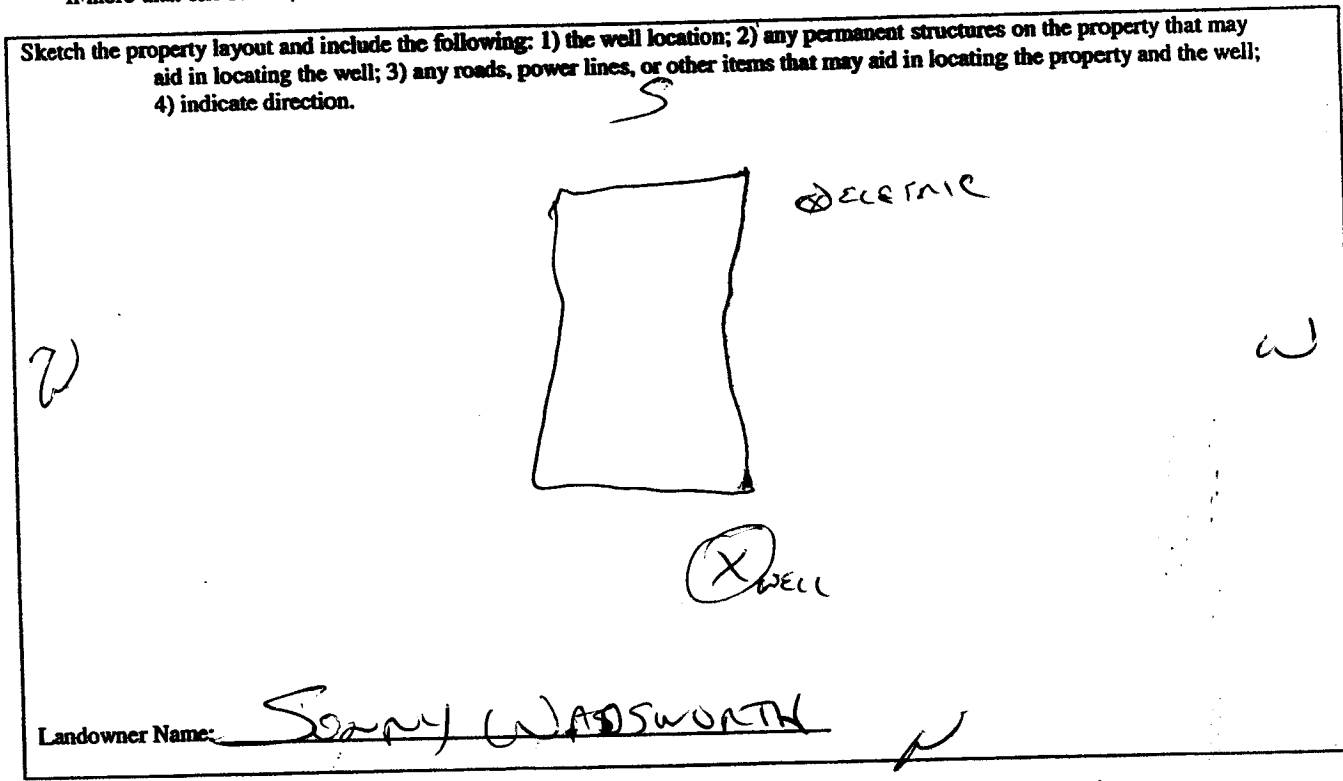 Sketch the property layout and include the following: 1) the well location; 2) any permanent structures on the property that may
aid in locating the well; 3) any roads, power lines, or other items that may aid in locating the property and the well;
4) indicate direction.
S
ELETRIC
W
X WELL
Landowner Name: SONNY WADSWORTH
N